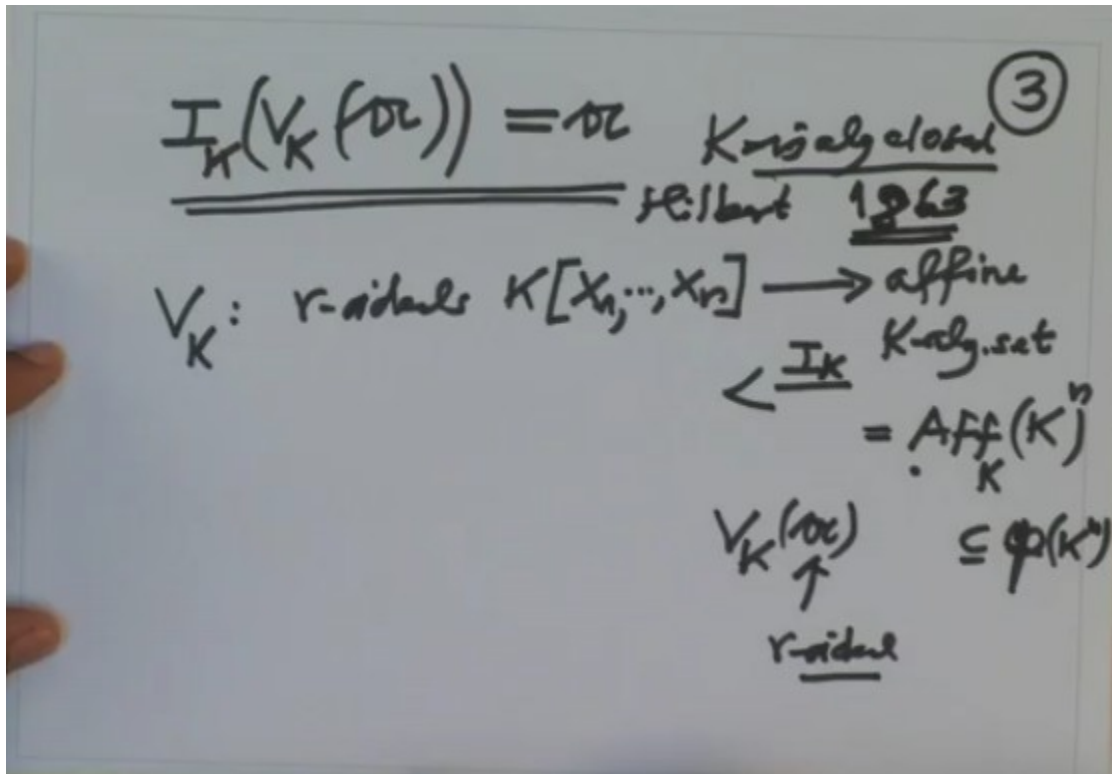 ③
I_K(V_K(𝔞)) = 𝔞 K is alg closed
Hilbert 1863
V_K: r-ideals K[X_1,...,X_n] ⟶ affine
K-alg. set
⟵ I_K
= Aff_K(K^n)
V_K(𝔞) ⊆ 𝔓(K^n)
↑
r-ideal